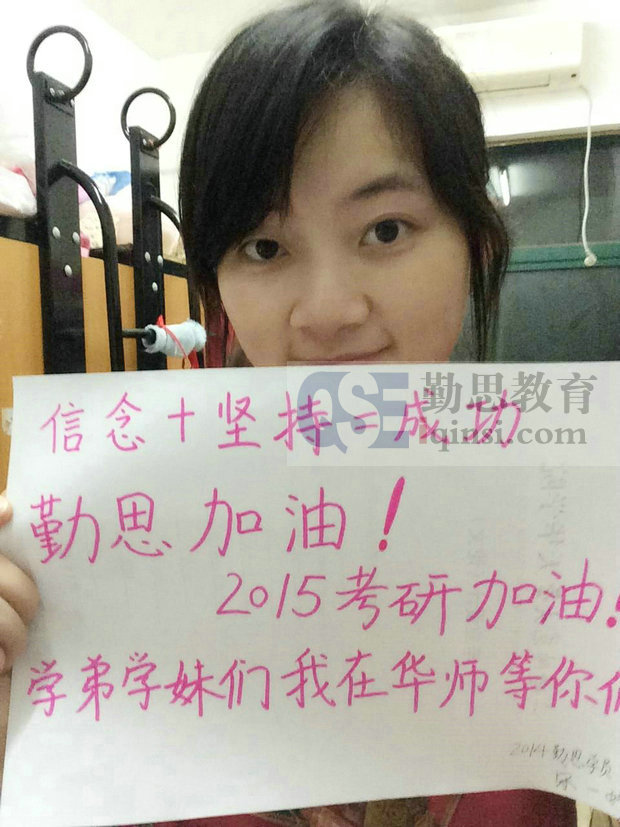 信念+坚持=成功
QSE 勤思教育
qinsi.com
勤思加油!
2015考研加油!
学弟学妹们我在华师等你们
2014勤思学员